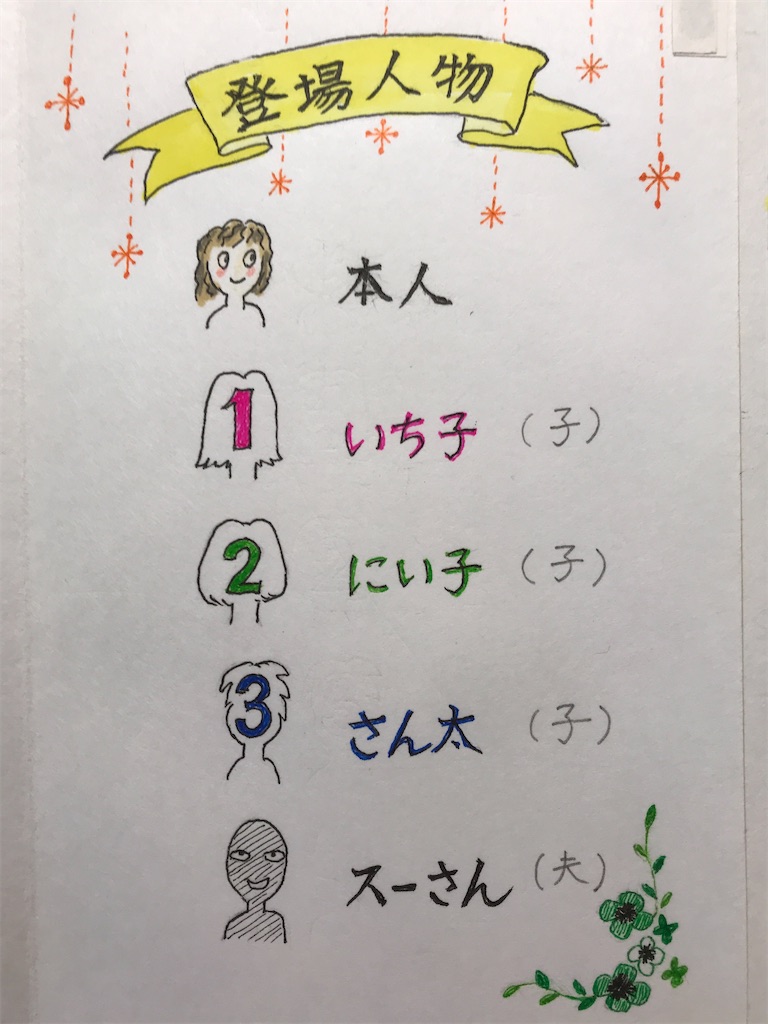 登場人物
本人
1 いち子 (子)
2 にい子 (子)
3 さん太 (子)
スーさん (夫)